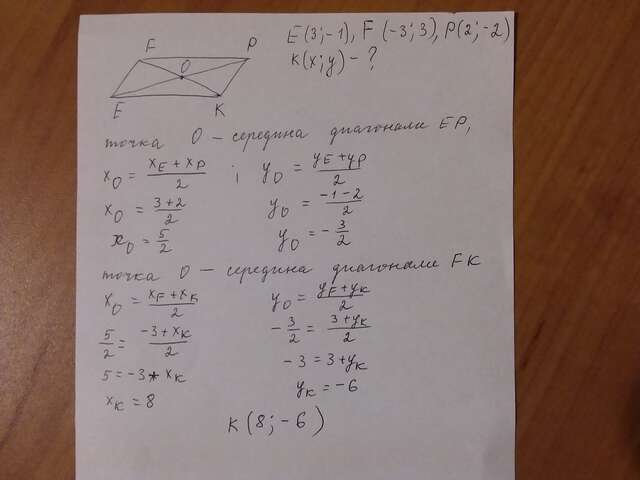 E(3;-1), F(-3;3), P(2;-2)
K(x;y) - ?
F
P
O
E
K
точка O - середина диагонали EP,
x_O = (x_E + x_P)/2 ; y_O = (y_E + y_P)/2
x_O = (3+2)/2 y_O = (-1-2)/2
x_O = 5/2 y_O = -3/2
точка O - середина диагонали FK
x_O = (x_F + x_K)/2 y_O = (y_F + y_K)/2
5/2 = (-3+x_K)/2 -3/2 = (3+y_K)/2
5 = -3 + x_K -3 = 3 + y_K
x_K = 8 y_K = -6
K(8;-6)